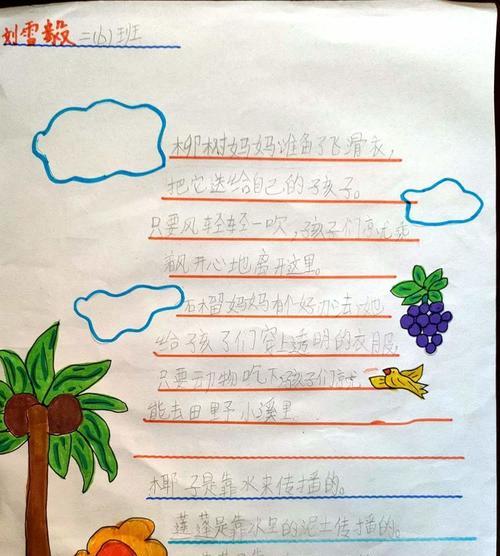 刘雪毅 二(6)班
柳树妈妈准备了飞滑衣，
把它送给自己的孩子。
只要风轻轻一吹，孩子们就乘
着风开心地离开这里。
石榴妈妈有个好办法，她
给孩子们穿上透明的衣服，
只要动物吃下孩子们就
能去田野小溪里
椰子是靠水来传播的。
莲蓬是靠水里的泥土传播的。